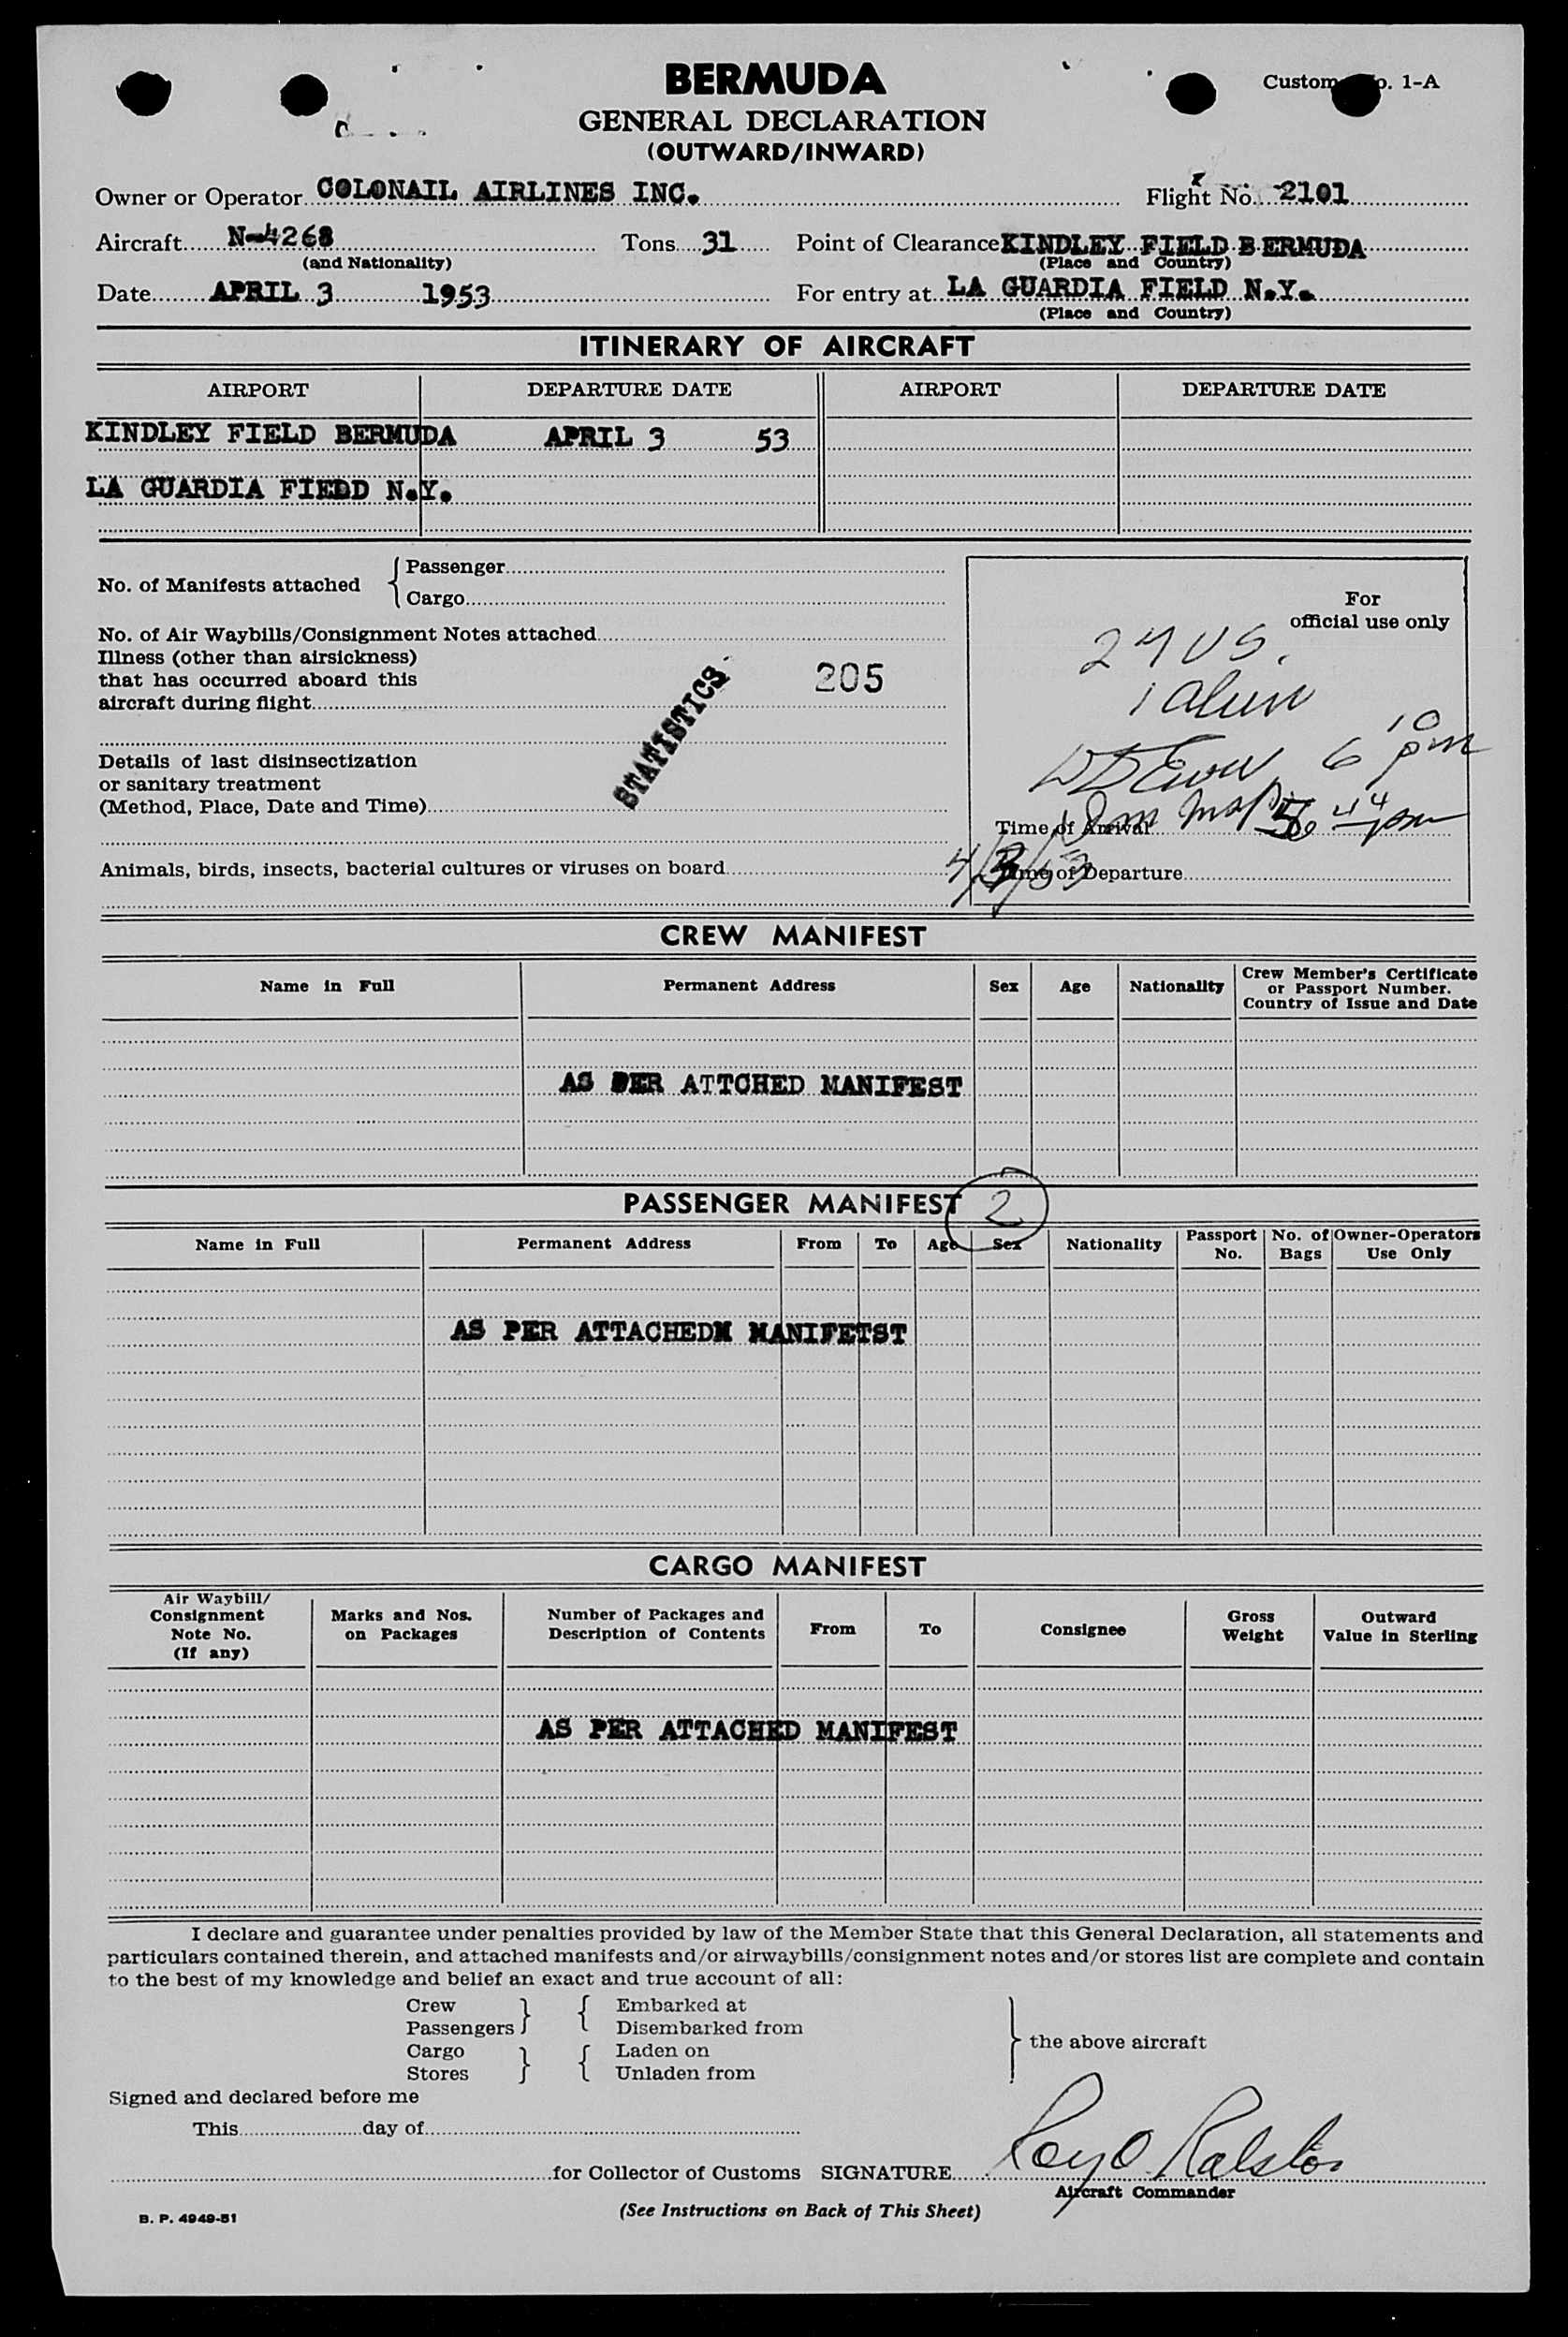 BERMUDA
Customs No. 1-A
GENERAL DECLARATION
(OUTWARD/INWARD)
Owner or Operator COLONAIL AIRLINES INC. Flight No. 2101
Aircraft N-4268 Tons 31 Point of Clearance KINDLEY FIELD BERMUDA
(and Nationality) (Place and Country)
Date APRIL 3 1953 For entry at LA GUARDIA FIELD N.Y.
(Place and Country)
ITINERARY OF AIRCRAFT
AIRPORT DEPARTURE DATE AIRPORT DEPARTURE DATE
KINDLEY FIELD BERMUDA APRIL 3 53
LA GUARDIA FIEDD N.Y.
No. of Manifests attached { Passenger
Cargo
For
official use only
No. of Air Waybills/Consignment Notes attached
Illness (other than airsickness)
that has occurred aboard this
aircraft during flight
205
STATISTICS
US.
1 alien
6 10 pm
Details of last disinsectization
or sanitary treatment
(Method, Place, Date and Time)
Time of Arrival 44 pm
Animals, birds, insects, bacterial cultures or viruses on board
4/3/53
Time of Departure
CREW MANIFEST
Name in Full Permanent Address Sex Age Nationality Crew Member's Certificate
or Passport Number.
Country of Issue and Date
AS PER ATTCHED MANIFEST
PASSENGER MANIFEST 2
Name in Full Permanent Address From To Age Sex Nationality Passport No. No. of Bags Owner-Operators Use Only
AS PER ATTACHEDM MANIFETST
CARGO MANIFEST
Air Waybill/
Consignment
Note No.
(If any)
Marks and Nos.
on Packages
Number of Packages and
Description of Contents
From To Consignee
Gross
Weight
Outward
Value in Sterling
AS PER ATTACHED MANIFEST
I declare and guarantee under penalties provided by law of the Member State that this General Declaration, all statements and
particulars contained therein, and attached manifests and/or airwaybills/consignment notes and/or stores list are complete and contain
to the best of my knowledge and belief an exact and true account of all:
Crew } { Embarked at
Passengers Disembarked from
Cargo } { Laden on
Stores Unladen from
} the above aircraft
Signed and declared before me
This day of
for Collector of Customs SIGNATURE Roy O Ralston
Aircraft Commander
(See Instructions on Back of This Sheet)
B. P. 4949-51